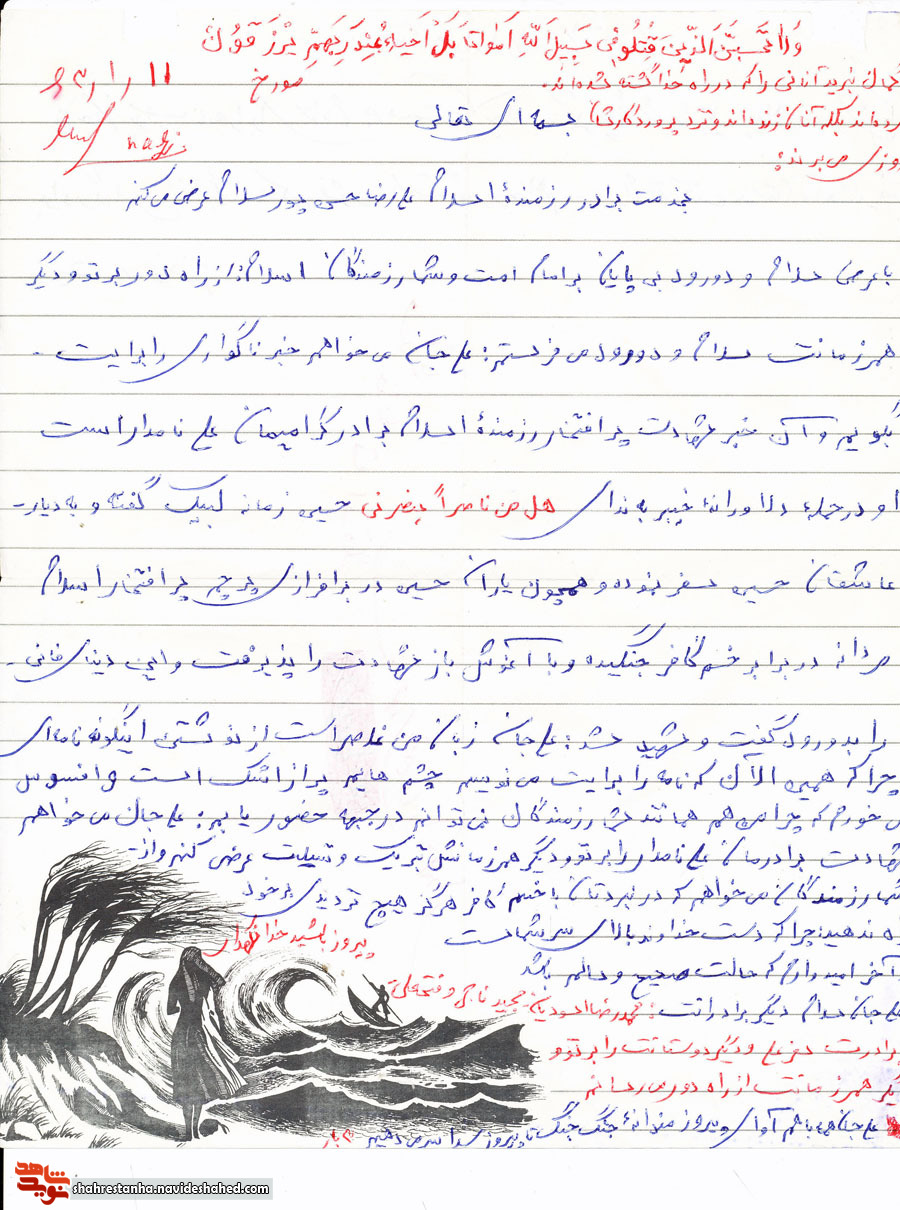 ولا تحسبن الذین قتلو فی سبیل الله امواتا بل احیاء عند ربهم یرزقون
گمان نبرید آنانی را که در راه خدا کشته شده‌اند.
مورخ ۱۱ ر ۱ ر ۶۳
مرده‌اند بلکه آنان زنده‌اند و نزد پروردگارشان
بسمه ای تعالی
روزی می برند:
بخدمت برادر رزمندهٔ اسلام علیرضا حسن پور سلام عرض می کنم
با عرض سلام و دورود بی پایان بر امام امت و شما رزمندگان اسلام: از راه دور بر تو و دیگر
همرزمانت سلام و دورود می فرستم: علی جان می خواهم خبر ناگواری را برایت -
بگویم و آن خبر شهادت پر افتخار رزمندهٔ اسلام برادر گرامیمان علی نامدار است
او در حملهٔ دلاورانهٔ خیبر به ندای هل من ناصراً ینصرنی حسین زمانه لبیک گفته و به دیار-
عاشقان حسین سفر نموده و همچون یاران حسین در برافرازی پرچم پر افتخار اسلام
مردانه در برابر خصم کافر جنگیده و با آغوش باز شهادت را پذیرفت و این دنیای فانی -
را بدورود گفت و شهید شد: علی جان زبان من قاصر است از نوشتن اینگونه نامه‌ای
چرا که همین الآن که نامه را برایت می نویسم چشم هایم پر از اشک است و افسوس
می خورم که چرا من هم همانند شما رزمندگان نمی توانم در جبهه حضور یابم: علی جان می خواهم
شهادت برادرمان علی نامدار را بر تو و دیگر همرزمانش تبریک و تسلیت عرض کنم و از -
شما رزمندگان می خواهم که در نبردتان با خصم کافر هرگز هیچ تردیدی بر خود
راه ندهید: چرا که دست خداوند بالای سر شماست
پیروز باشید خدا نگهدار
آخر امیدوارم که حالت صحیح و سالم باشد
علی جان سلام دیگر برادرانت: محمد رضا اسودیان: مجید ناجی و فتحعلی
برادرت و دیگر دوستانت را بر تو و
دیگر همرزمانت از راه دور می رسانم
علی جان همه با هم آوای پیروزمندانهٔ جنگ جنگ تا پیروزی سر می دهیم ۳ بار
شاهد
نوید
shahrestanha.navideshahed.com